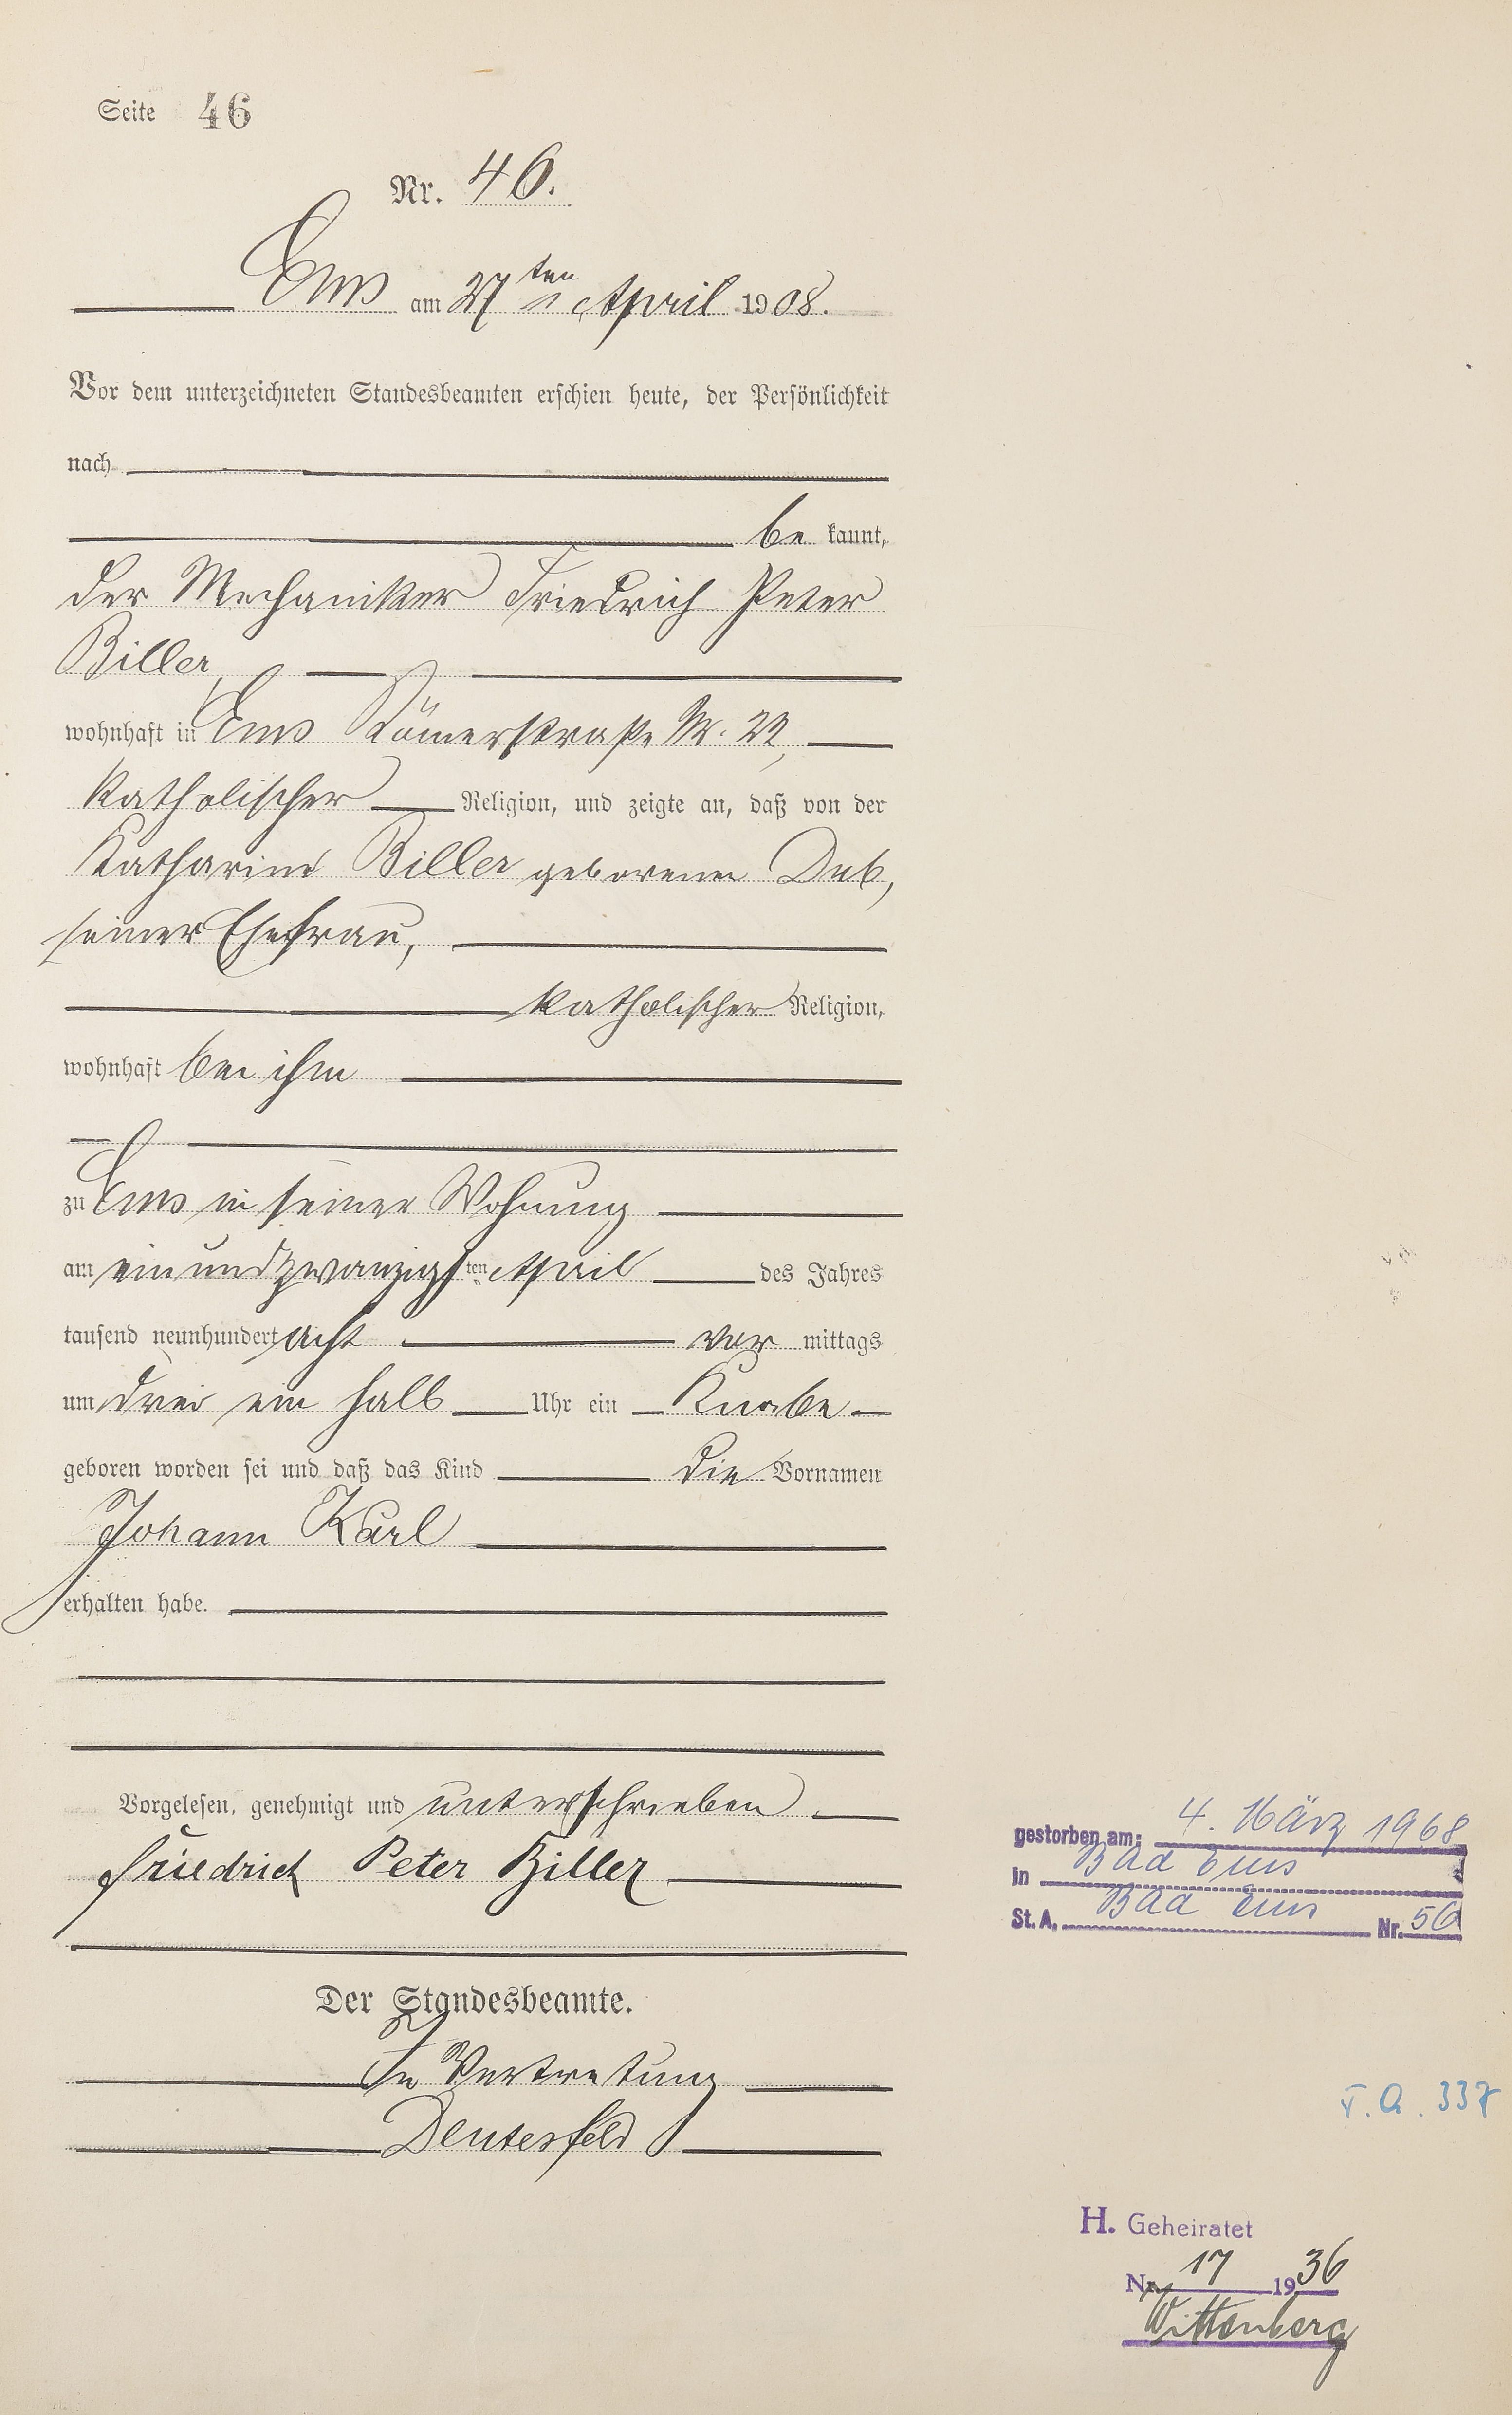 Seite 46
Nr. 46.
Ems am 27ten April 1908.
Vor dem unterzeichneten Standesbeamten erschien heute, der Persönlichkeit
nach
be kannt,
der Mechaniker Friedrich Peter
Biller,
wohnhaft in Ems Römerstraße Nr. 22,
katholischer Religion, und zeigte an, daß von der
Katharina Biller geborenen Deb,
seiner Ehefrau,
katholischer Religion,
wohnhaft bei ihm
zu Ems in seiner Wohnung
am einundzwanzigsten April des Jahres
tausend neunhundert acht vor mittags
um drei ein halb Uhr ein Knabe
geboren worden sei und daß das Kind die Vornamen
Johann Karl
erhalten habe.
Vorgelesen, genehmigt und unterschrieben.
Friedrich Peter Biller
Der Standesbeamte.
In Vertretung
Deutesfeld
gestorben am: 4. März 1968
in Bad Ems
St. A. Bad Ems Nr. 56
T. A. 337
H. Geheiratet
Nr. 17 1936
Wittenberg